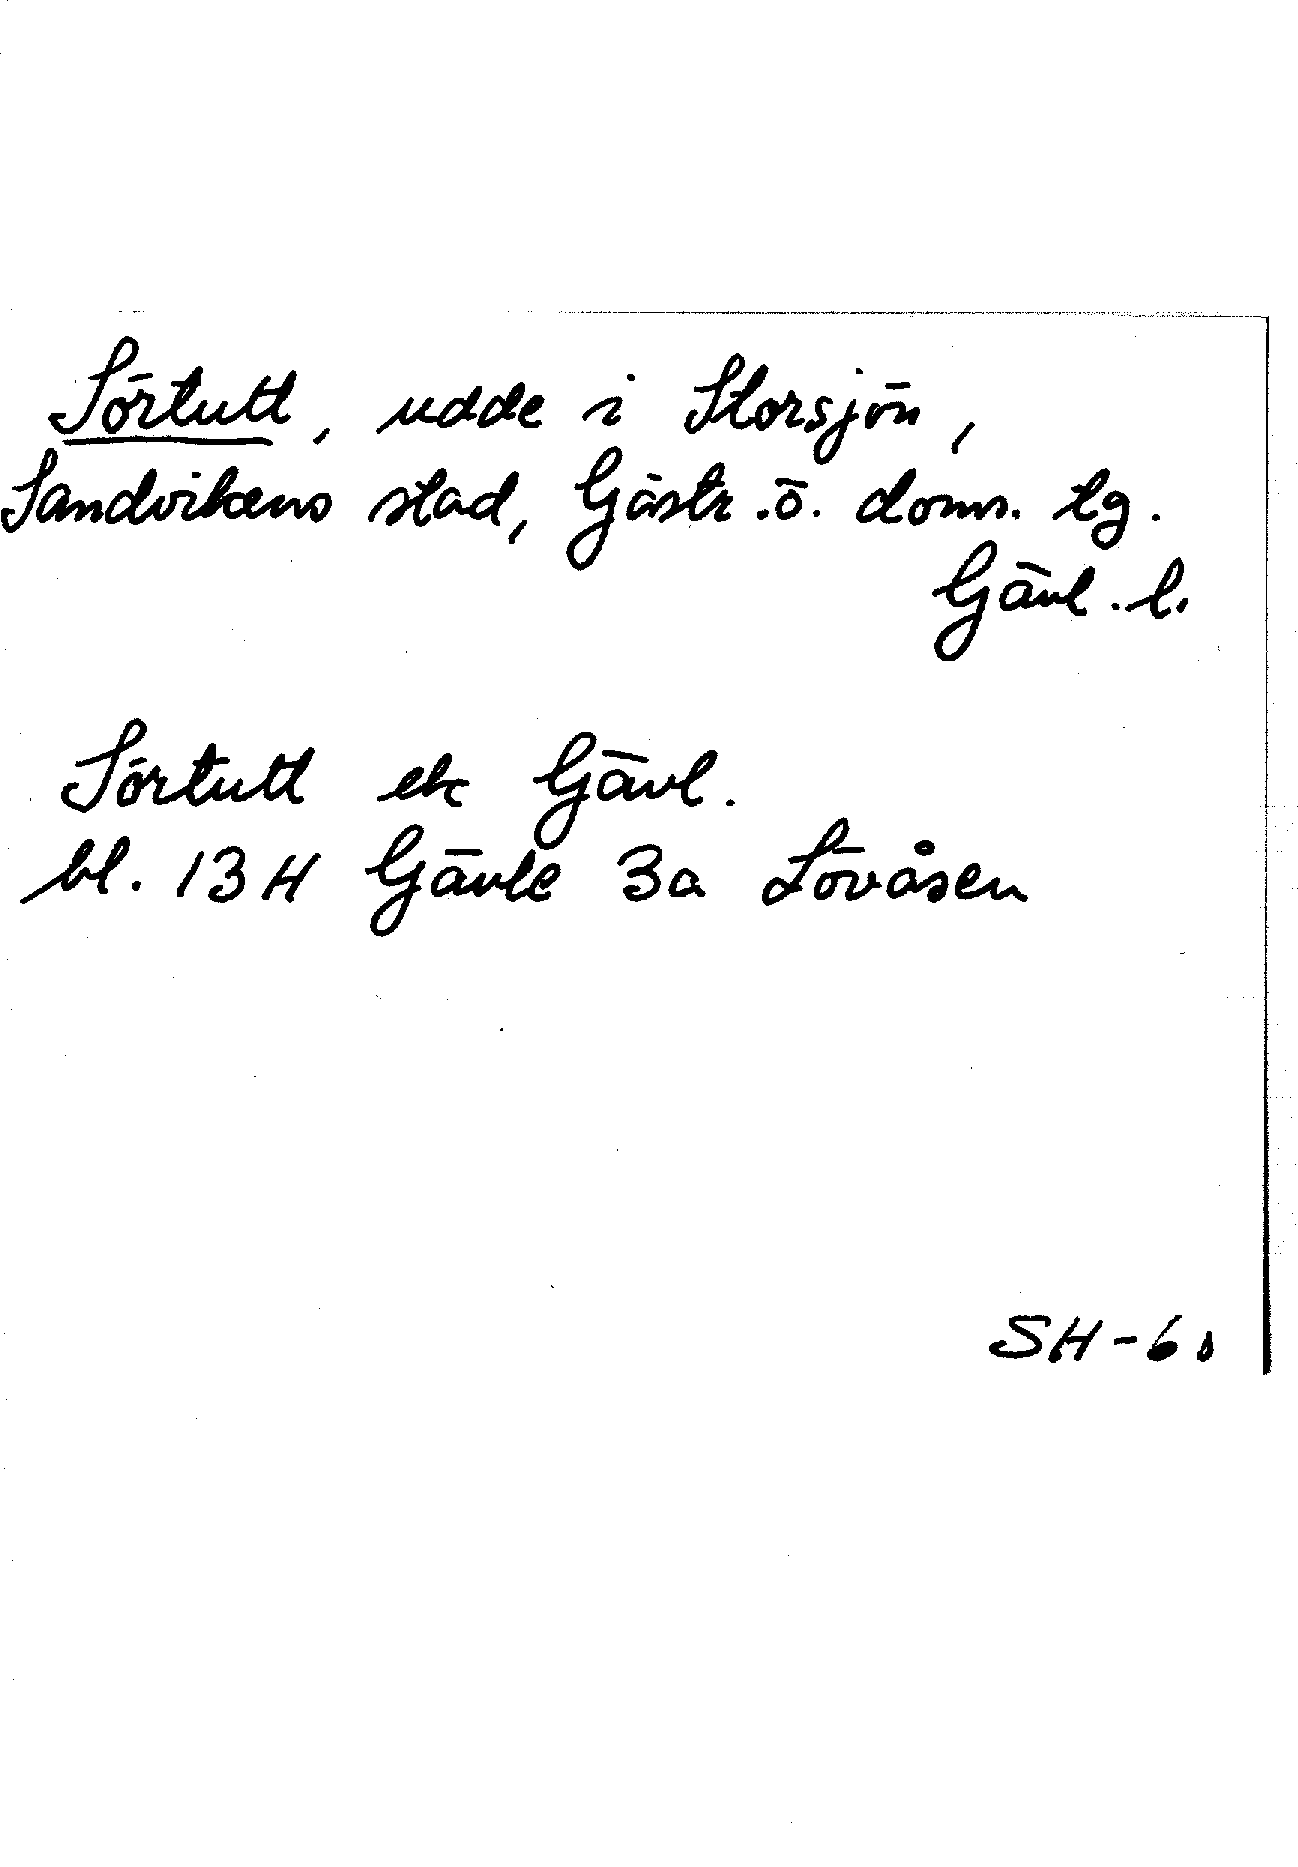 Sörtutt, udde i Storsjön,
Sandvikens stad, Gästr.ö. doms. tg.
Gävl.l.
Sörtutt ek Gävl.
bl. 13H Gävle 3a Lövåsen
SH-60